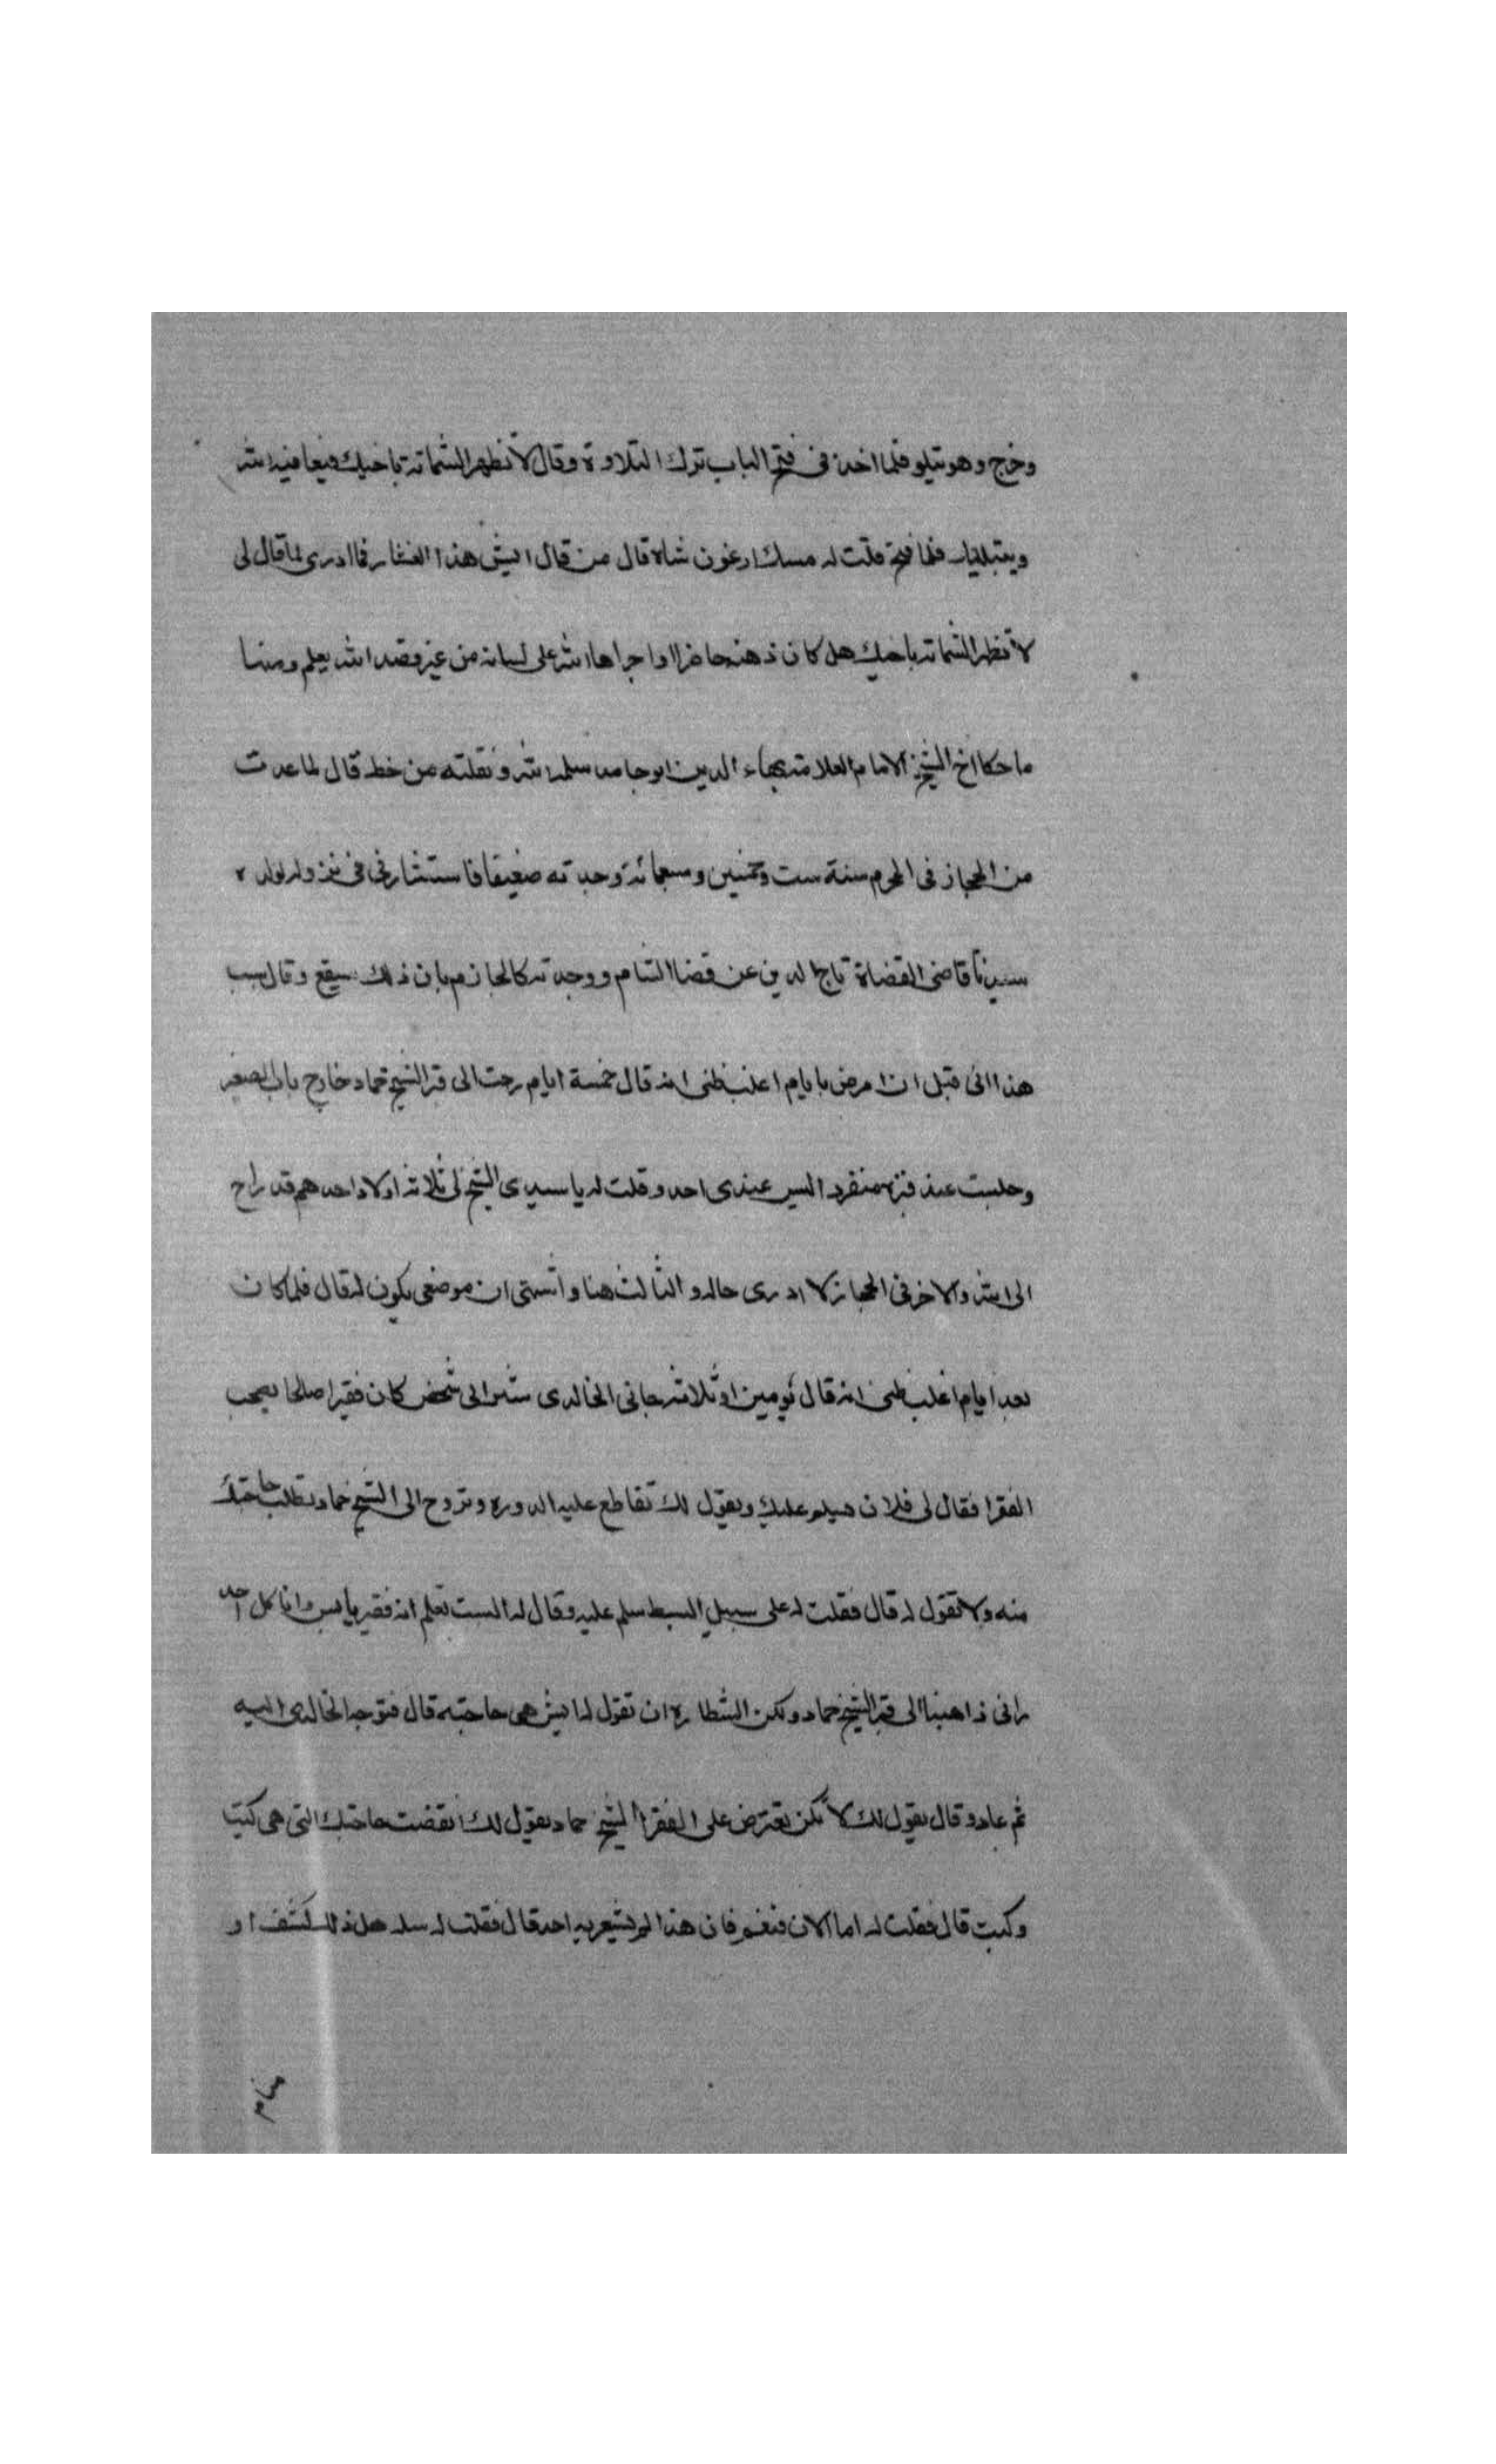 وخرج وهو يتلو فلما اخذ في فتح الباب ترك التلاوة وقال لا تظهر الشماتة باخيك فيعافيه الله
ويبتليك فلما فتح قلت له مسك ارغون شاه قال من قال ايش هذا الفشار فما ادرى لما قال لى
لا تظهر الشماتة باخيك هل كان ذهنه حاضرا او اجراها الله على لسانه من غير قصد الله يعلم ومنها
ما حكا اخ الشيخ الامام العلامة بهاء الدين ابو حامد سلمه الله ونقلته من خطه قال لما عدت
من الحجاز في المحرم سنة ست وخمسين وسبعمائة وجدته ضعيفا فاستشارنى فى نزوله لولده
سيدنا قاضى القضاة تاج الدين عن قضا الشام ووجدته كالجازم بان ذلك سيقع وقال سبب
هذا انى قبل ان امرض بايام اغلب ظنى انه قال خمسة ايام رحت الى قبر الشيخ حماد خارج باب الصغير
وجلست عند قبره منفردا ليس عندى احد وقلت له يا سيدى الشيخ لى ثلاثة اولاد احدهم قد راح
الى الله والاخر فى الحجاز لا ادرى حاله والثالث هنا واشتهى ان موضعى يكون له قال فلما كان
بعد ايام اغلب ظنى انه قال يومين او ثلاثة جانى الخالدى يشير الى شخص كان فقيرا صالحا يصحب
الفقرا فقال لى فلان يسلم عليك ويقول لك تقاطع عليه الدوره وتروح الى الشيخ حماد تطلب حاجتك
منه ولا تقول له قال فقلت له على سبيل البسط سلم عليه وقال له الست تعلم انه فقير يابس وانا كل احد
رانى ذاهبا الى قبر الشيخ حماد ولكن الشطارة ان تقول له ايش هى حاجته قال فتوجه الخالدى اليه
ثم عاد وقال يقول لك لا تكن تعترض على الفقرا الشيخ حماد يقول لك انقضت حاجتك التى هى كيت
وكيت قال فقلت له اما الان فنعم فان هذا لم يشعر به احد قال فقلت له سله هل ذلك كشف او
منام